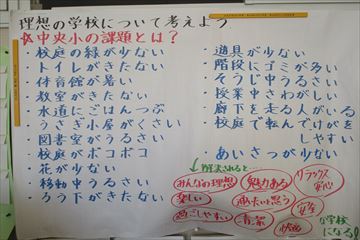 理想の学校について考えよう
中央小の課題とは?
・校庭の緑が少ない
・トイレがきたない
・体育館が暑い
・教室がきたない
・水道にごはんつぶ
・うさぎ小屋がくさい
・図書室がうるさい
・校庭がボコボコ
・花が少ない
・移動中うるさい
・ろう下がきたない
・道具が少ない
・階段にゴミが多い
・そうじ中うるさい
・授業中さわがしい
・廊下を走る人がいる
・校庭で転んでけがを
しやすい
・あいさつが少ない
解決されると
みんなの理想
魅力ある
リラックス
安心
楽しい
通いたいと思う
安全
過ごしやすい
清潔
快適
な学校
になる!